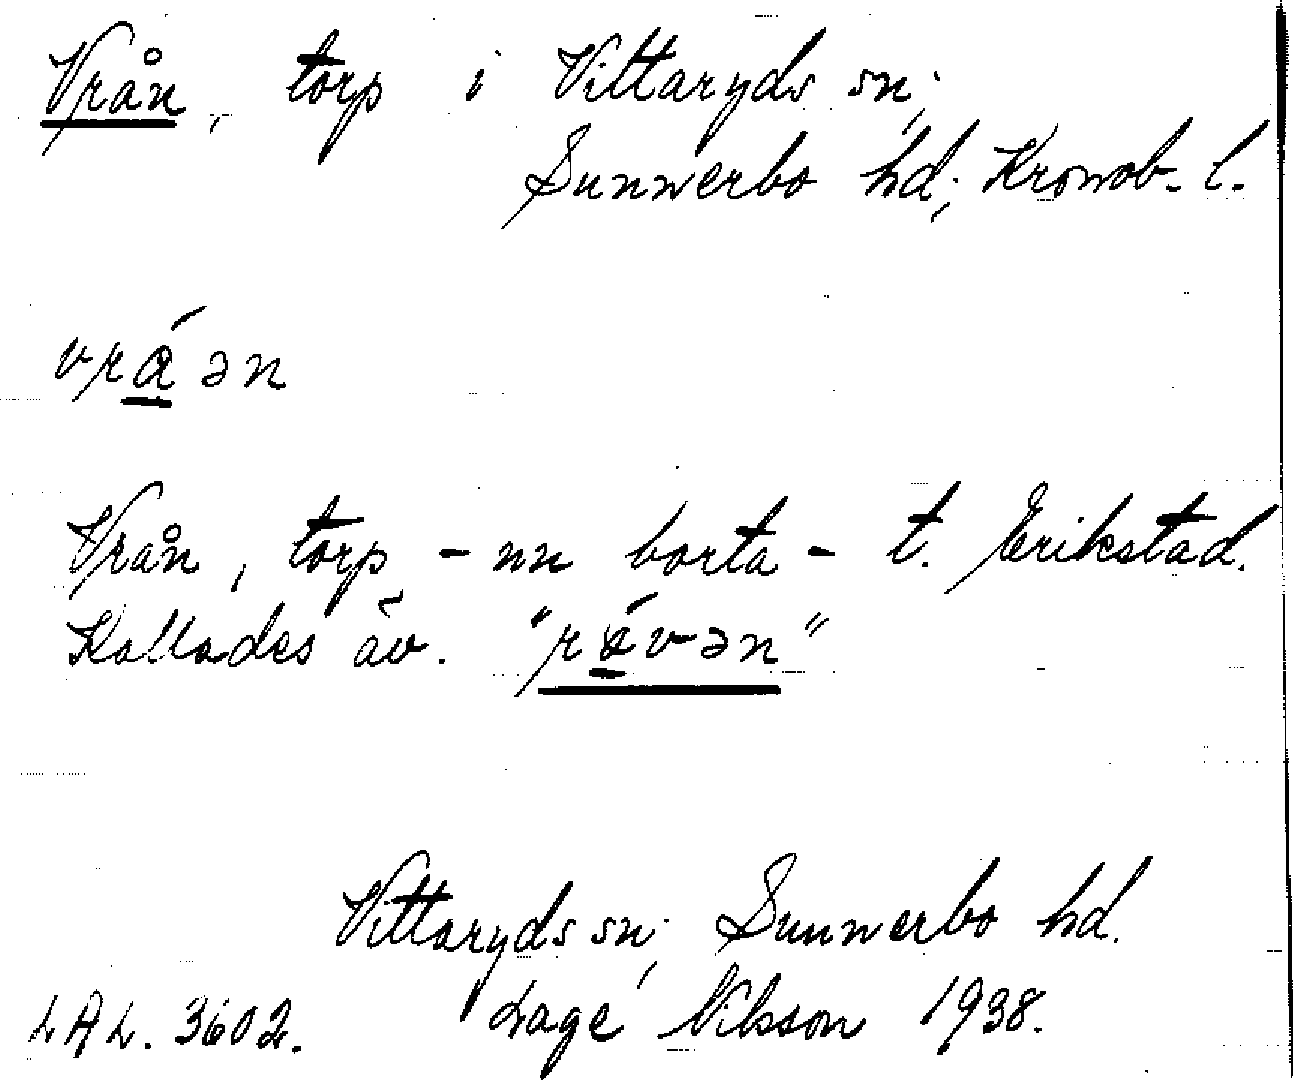 Vrån, torp i Vittaryds sn;
Sunnerbo hd; Kronob. l.
vrá̱ən
Vrån, torp - nu borta - t. Erikstad.
Kallades äv. "rá̱vən"
Vittaryds sn; Sunnerbo hd.
LAL. 3602. Lage Nilsson 1938.